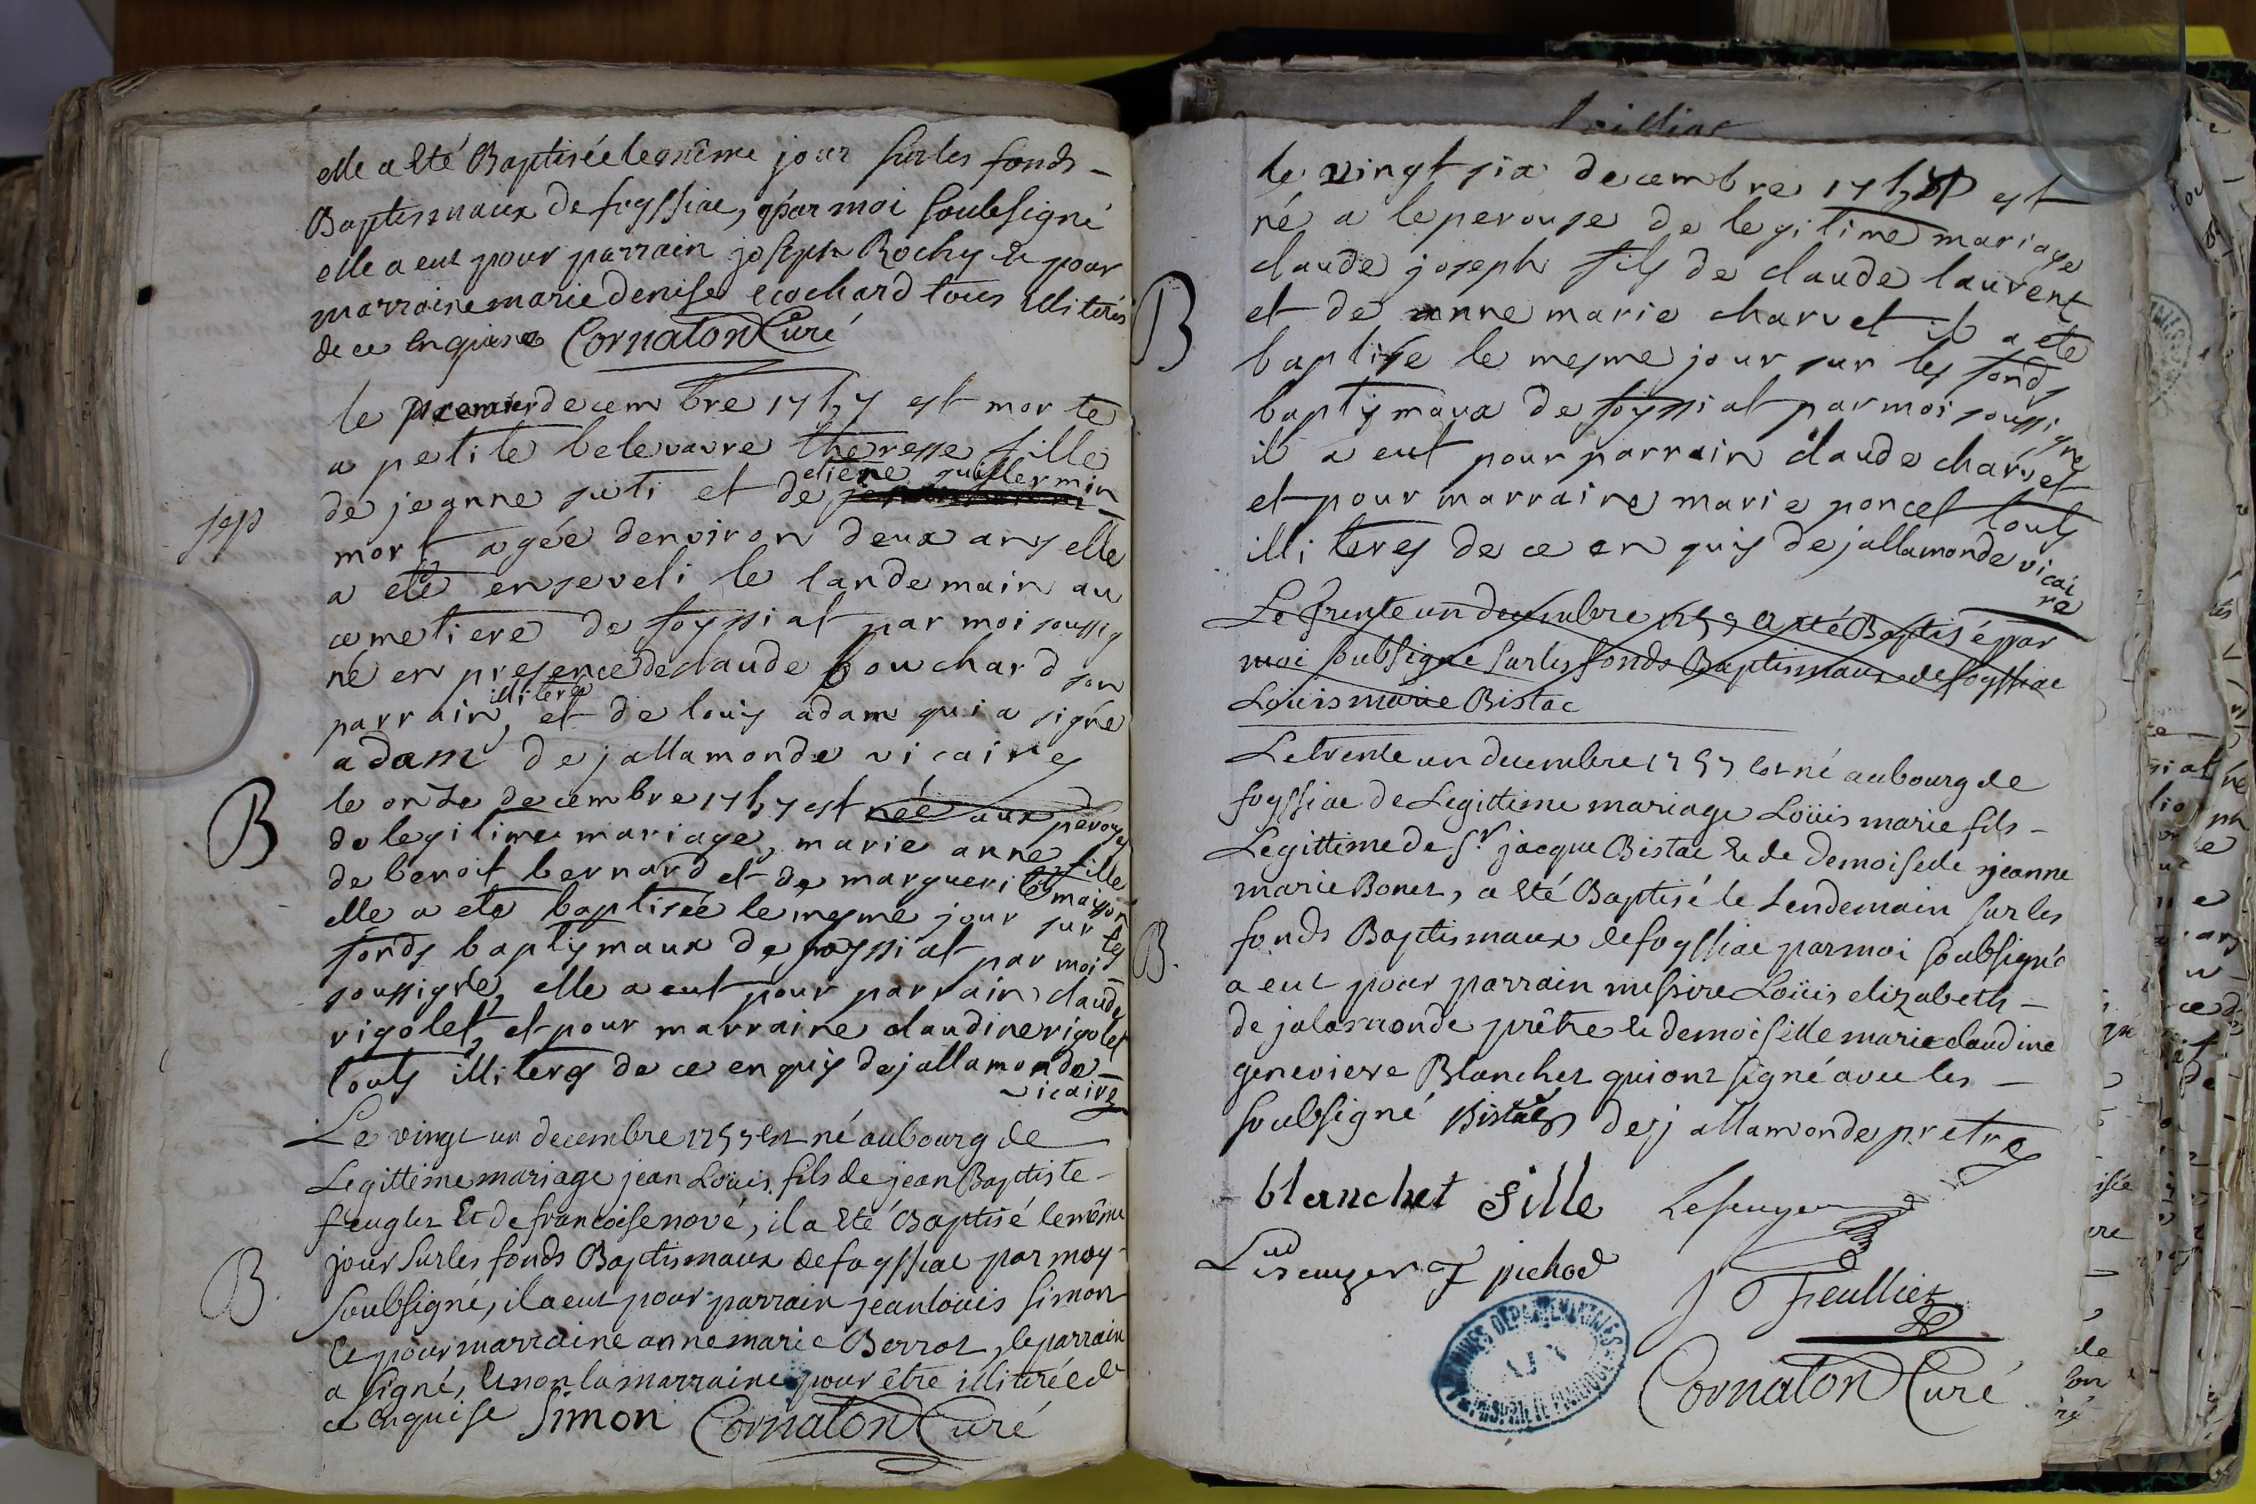 elle a Eté Baptisée le même jour sur les fonds -
Baptismaux de foyssiac, par moi soubsigné
elle a eut pour parrain joseph Rochy & pour
marraine marie denise ecochard tous illiterés
de ce enquis Cornaton Curé
le premier decembre 1757 est morte
a petite belevavre theresse fille
de jeanne juti et de etiene guillermin
sep
mort agée denviron deux ans elle
a eté enseveli le landemain au
cemetiere de foyssiat par moi soussig
né en presence de claude bouchard son
parrain illiteré, et de louis adam qui a signé
adam dejallamonde vicaire
B
le onze decembre 1757 est née aux perouse
de legitime mariage, marie anne fille
de benoit bernard et de marguerite maisson
elle a eté baptisée le mesme jour sur les
fonds baptismaux de foyssiat par moi
soussigné, elle a eut pour parrain claude
rigolet, et pour marraine claudine rigolet
touts illiteres de ce enquis dejallamonde
vicaire
Le vingt un decembre 1757 Est né au bourg de
Legittime mariage jean Loüis, fils de jean Baptiste -
feuglet Et de francoise nové, il a Eté Baptisé le même
B
jour sur les fonds Baptismaux de foyssiac par moy -
soubsigné, il a eut pour parrain jean louis simon
Et pour marraine anne marie Berrot, le parrain
a signé, & non la marraine pour être illiterée de
ce enquise Simon Cornaton Curé
le vingt six decembre 1757 est
né a leperouse de legitime mariage
B
claude joseph fils de claude laurent
et de anne marie charvet il a eté
baptise le mesme jour sur les fonds
baptismaux de foyssiat par moi soussigné
il a eut pour parrain claude charvet
et pour marraine marie poncet touts
illiteres de ce enquis dejallamonde vicaire
Le trente un decembre 1757 a Eté Baptisé par
moi soubsigné sur les fonds Baptismaux de foyssiac
Loüis marie Bistac
Le trente un decembre 1757 est né au bourg de
foyssiac de Legittime mariage Loüis marie fils -
Legittime de Sr jacque Bistac & de Demoiselle jeanne
marie Bonet, a Eté Baptisé le Lendemain sur les
B.
fonds Baptismaux de foyssiac par moi soubsigné
a eut pour parrain messire Loüis elizabeth -
de jalamonde prêtre & demoiselle marie claudine
genevieve Blanchet qui ont signé avec les -
soubsigné Bistac dejallamonde pretre
blanchet fille
pichod
J feulliet
Cornaton Curé
ARCHIVES DEPARTEMENTALES
AIN